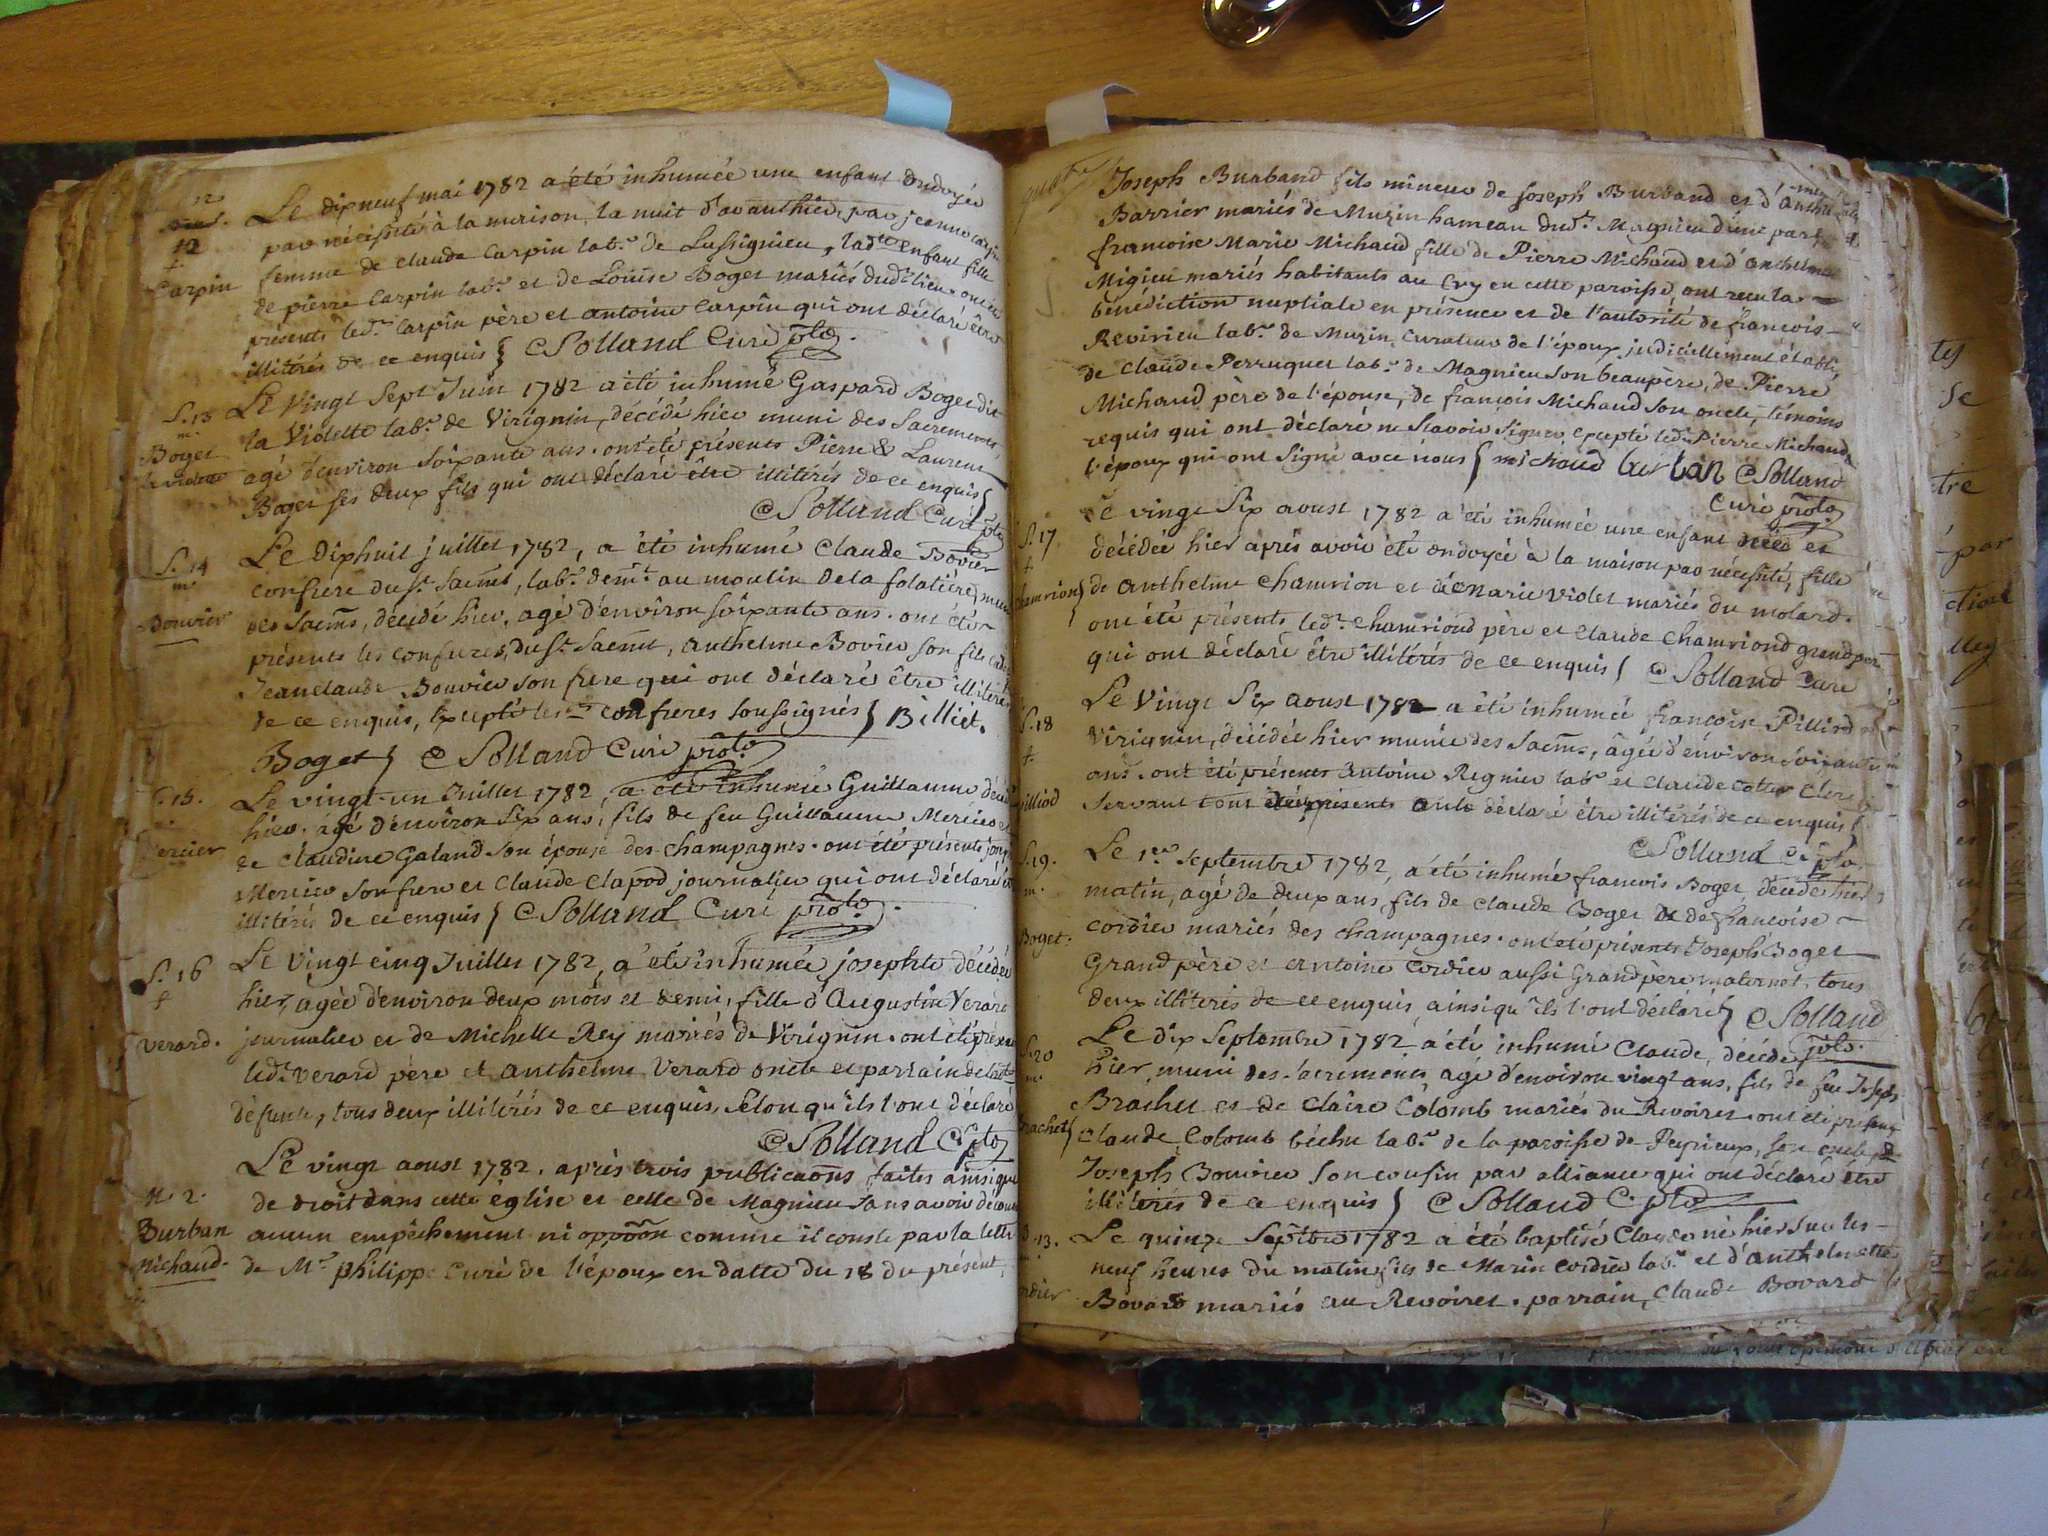 12
Le dix neuf mai 1782 a été inhumée une enfant ondoyée
12
par nécéssité à la maison, la nuit d'avanthier, par jeanne
f.
Carpin
femme de claude Carpin lab.r de Lassignieu, lad.te Enfant fille
de pierre Carpin lab.r et de Louise Boget mariés dud.t lieu. ont été
présents led.t Carpin père et antoine Carpin qui ont déclaré être
illitérés de ce enquis } C Solland Curé pto
S. 13
m.
Boget
la violette
Le Vingt Sept Juin 1782 a été inhumé Gaspard Boget dit
la Violette lab.r de Virignin, décédé hier muni des Sacremens,
agé d'environ Soixante ans. ont été présents Pierre & Laurent
Boget ses deux fils qui ont déclaré être illitérés de ce enquis }
C Solland Curé pto
S. 14
m.
Bouvier
Le Dixhuit juillet 1782, a été inhumé Claude Bovier
confrere du St. Sacmt, lab.r dem.t au moulin de la folatiére, muni
des Sacms, décédé hier, agé d'environ soixante ans. ont été
présents les confreres du St. Sacmt, Anthelme Bovier son fils
Jeanclaude Bouvier son frere qui ont déclaré être illitérés
de ce enquis, Excepté les confreres soussignés } Billiet.
Boget } C Solland Curé proto
S. 15.
m.
Mercier
Le vingt-un Juillet 1782, a été inhumé Guillaume décédé
hier. agé d'environ Six ans, fils de feu Guillaume Mercier et
de Claudine Galand son épouse des champagnes. ont été présents
Mercier son frere et Claude Clapod journalier qui ont déclaré être
illitérés de ce enquis } C Solland Curé proto.
S. 16
f
Verard.
Le Vingt cinq Juillet 1782, a été inhumée josephte décédée
hier, agée d'environ deux mois et demi, fille d'Augustin Verard
journalier et de Michelle Rey mariés de Virignin. ont été présents
led.t Verard père et anthelme Verard oncle et parrain de
défunte, tous deux illitérés de ce enquis, Selon qu'ils l'ont déclaré
C Solland C. pto
M. 2.
Burban
Michaud.
Le vingt aoust 1782. après trois publicaons faites ainsi que
de droit dans cette église et celle de Magnieu sans avoir découvert
aucun empêchement ni oppoon comme il conste par la lettre
de Mr. philippe Curé de l'époux en datte du 18 du présent,
Joseph Burband fils mineur de joseph Burband et d'Anthelmette
Barrier mariés de Muzin hameau dud.t Magnieu d'une part, &
francoise Marie Michaud fille de Pierre Michaud et d'anthelmette
Migieu mariés habitants au Cry en cette paroisse, ont recu la
bénédiction nuptiale en présence et de l'autorité de francois
Revirieu lab.r de Muzin, Curateur de l'époux judiciellement établi,
de Claude Perruquet lab.r de Magnieu son beaupère, de Pierre
Michaud père de l'épouse, de francois Michaud son oncle, témoins
requis qui ont déclaré ne Scavoir Signer, excepté led.t Pierre Michaud &
l'époux qui ont Signé avec nous } michaud burban C Solland
Curé proto
S. 17
f
Chamrion }
Le vingt Six aoust 1782 a été inhumée une enfant née et
décédée hier après avoir été ondoyée à la maison par nécessité, fille
de anthelme Chamrion et de Marie Violet mariés du molard.
ont été présents led.t Chamriond père et Claude Chamriond grand père
qui ont déclaré être illitérés de ce enquis } C Solland Curé
S. 18
f.
Pilliod
Le Vingt Six aoust 1782 a été inhumée francoise Pilliod
Virignin, décédée hier munie des Sacms, âgée d'environ soixante
ans. ont été présents Antoine Regnier lab.r et Claude Cottet Clerc
servant tous déclaré être illitérés de ce enquis }
C Solland C. pto
S. 19.
m.
Boget.
Le 1.er Septembre 1782, a été inhumé francois Boget décédé hier
matin, agé de deux ans, fils de Claude Boget & de francoise
cordier mariés des champagnes. ont été présents Joseph Boget
Grand père et Antoine Cordier aussi Grand père maternel, tous
deux illiterés de ce enquis, ainsi qu'ils l'ont déclaré } C Solland
pto.
S. 20
m.
Brachet }
Le dix Septembre 1782 a été inhumé Claude, décédé
hier, muni des Sacremens, agé d'environ vingt ans, fils de feu Joseph
Brachet et de Claire Colomb mariés du Revoiret. ont été présents
Claude Colomb béchu lab.r de la paroisse de Peyrieux, son oncle &
Joseph Bouvier son cousin par alliance qui ont déclaré être
illiterés de ce enquis } C Solland C. pto
B. 13.
Cordier
Le quinze Septbre 1782 a été baptisé Claude né hier sur les
neuf heures du matin fils de Marin Cordier lab.r et d'anthelmette
Bovard mariés au Revoiret. parrain, Claude Bovard